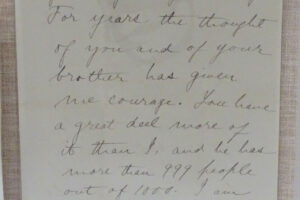 For years the thought
of you and of your
brother has given
me courage. You have
a great deel more of
it than I, and he has
more than 999 people
out of 1000. I am